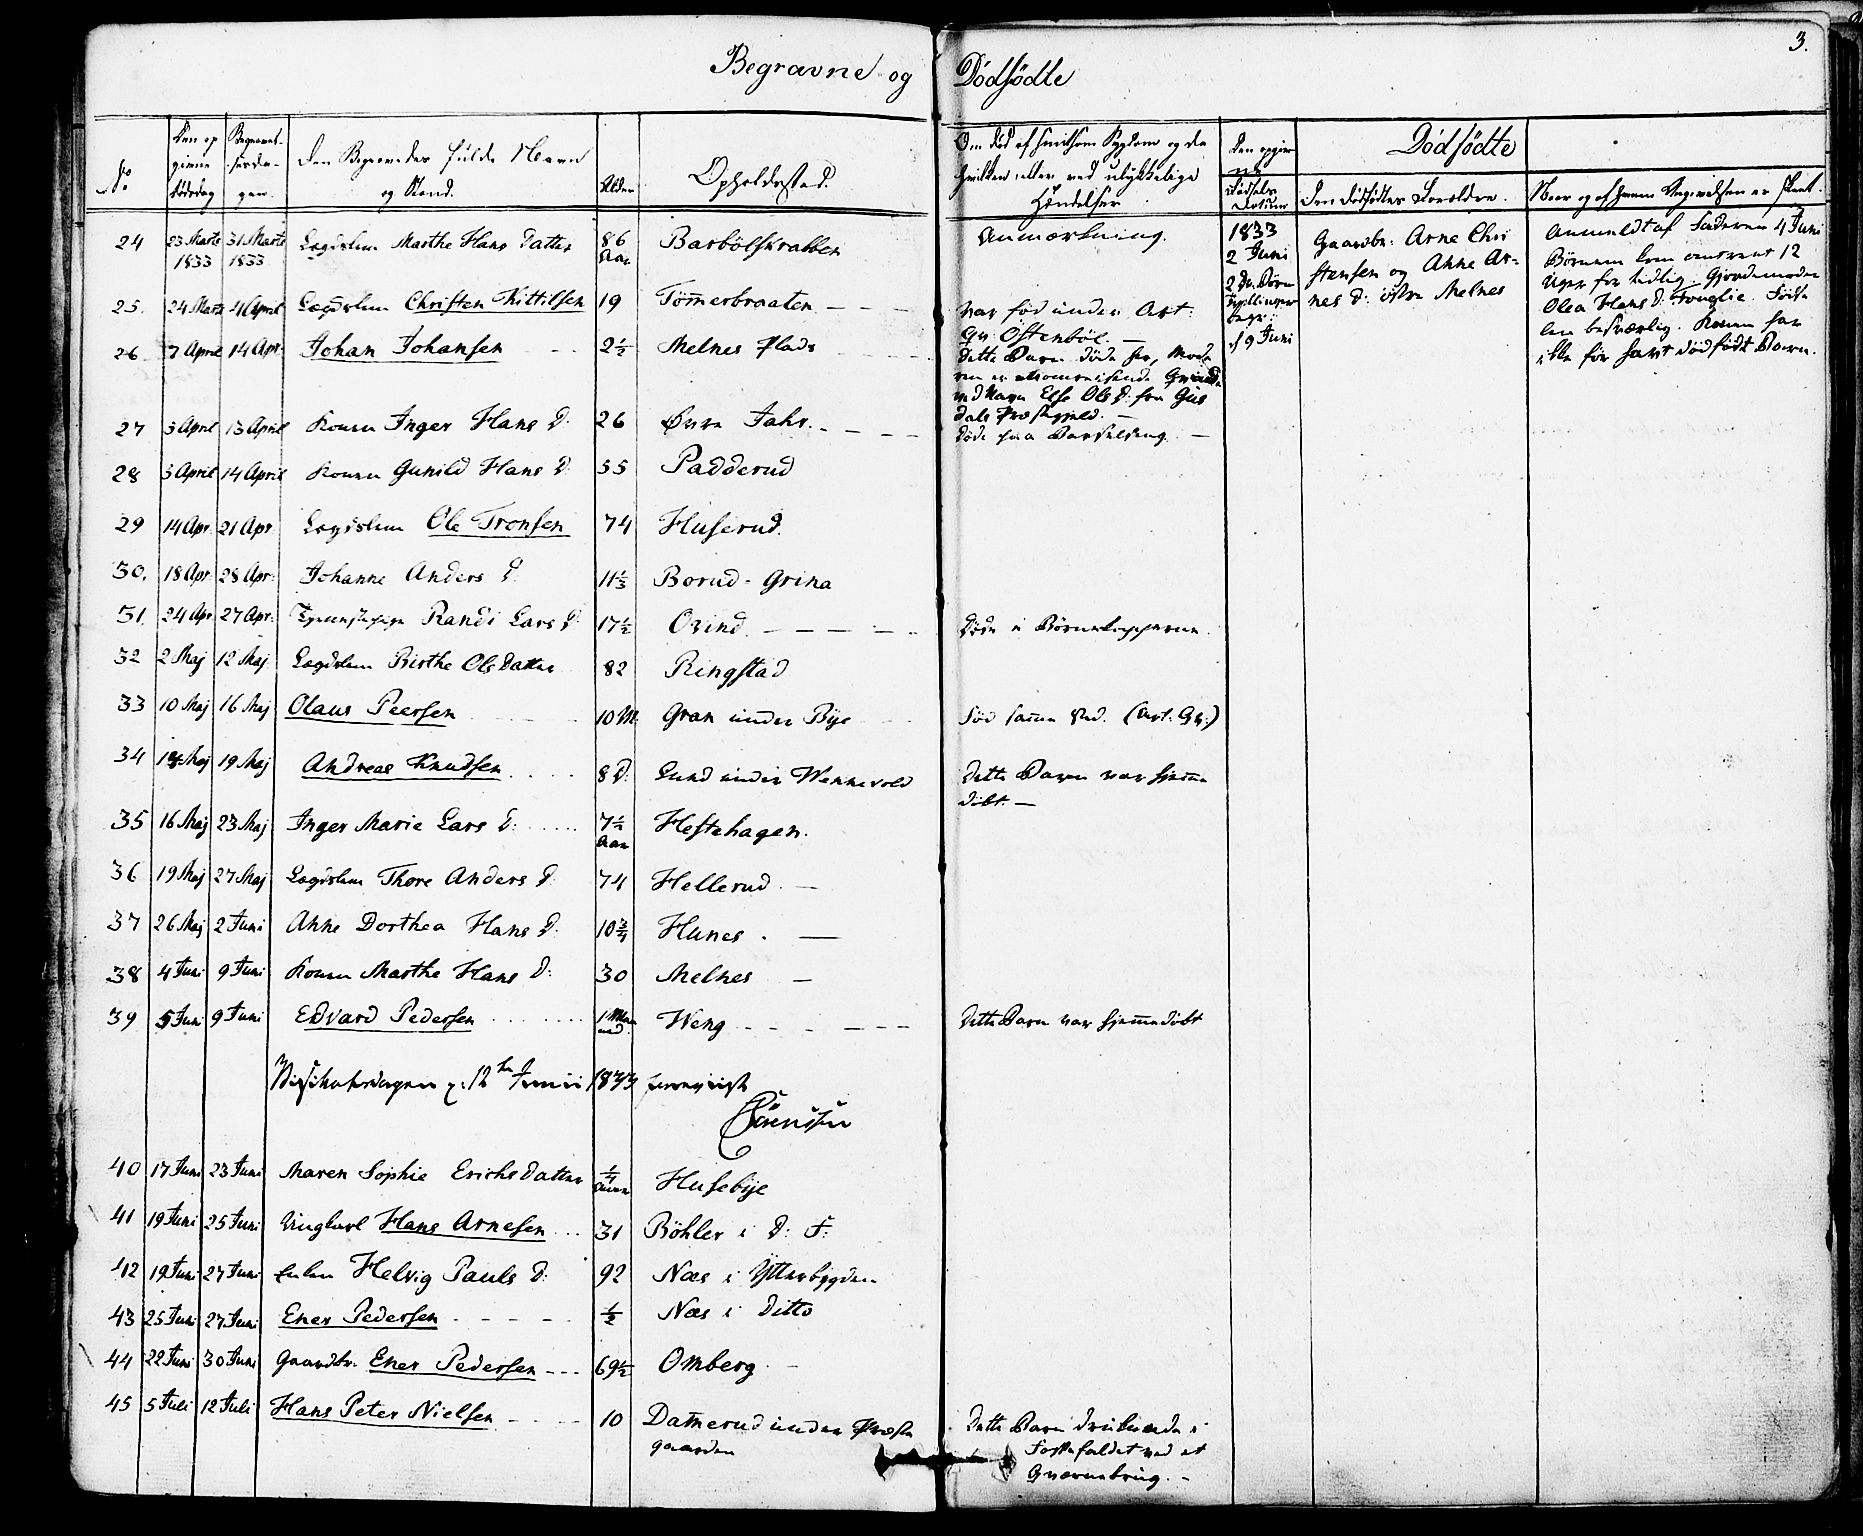 3.
Begravne og Dødfødte
No.
Den opgivne Dødsdag
Begravelsesdagen
Den Begravedes fulde Navn og Stand.
Alder
Opholdssted.
Om død af smitsom Sygdom og da hvilken, eller ved ulykkelige Hændelser
Den opgivne Fødsels Datum
Dødfødte
Den dødfødtes Forældre.
Naar og af hvem Angivelsen er skeet.
24 23 Marts 1833 31 Marts 1833 Lægdslem Marthe Hans Datter 86 Aar Barbölskrabben Anmærkning.
25. 24 Marts 4 April Lægdslem Christen Kittilsen 19 Tömmerbraaten
26 7 April 14 Apr: Johan Johansen 2½ Melnes Plads
var fød under Art:
Gr: Ostenböl. —
dette Barn døde her, Mode-
ren er et omreisende Qvinde
ved Navn Else Ols D: fra Gus
dals Præstegjeld. —
27 3 April 13 April Konen Inger Hans D: 26 Øvre Jahr. døde paa Barselseng. —
28 5 April 14 April Konen Gunild Hans D: 55 Padderud
29 14 Apr. 21 Apr Lægdslem Ole Tronsen 74 Huserud.
30. 18 Apr. 28 Apr: Johanne Anders D: 11⅓ Borud-Grina
31. 24 Apr 27 Apr. Tjenestepige Randi Lars D: 17½ Orind døde i Børnekopperne.
32 2 Maj 12 Maj Lægdslem Birthe Ols Datter 82 Ringstad
33 10 Maj 16 Maj Olaus Peersen 10 M. Gran under Bye fød samme Sted. (Art: Gr:)
34 14 Maj 19 Maj Andreas Knudsen 8 D: Lund under Wennevold dette Barn var hjemme
døbt. —
35 16 Maj 23 Maj Inger Marie Lars D: 7½ Aar Hestehagen.
36 19 Maj 27 Maj Lægdslem Thore Anders D: 74 Hellerud. —
37 26 Maj 2 Juni Anne Dorthea Hans D: 10¾ Hunes. —
38 4 Juni 9 Juni Konen Marthe Hans D: 30 Melnes —
39 5 Juni 9 Juni Edvard Pedersen 1 Maaned. Weng dette Barn var hjemmedøbt
1833
2 Juni
2 de Børn
Tvillinger
begr:
d 9 Juni
Gaardbr: Arne Chri
stensen og Anne Ar-
nes D: østre Melnes
Anmeldt af Faderen 4 Juni
Børnene kom omtrent 12
Uger for tidlig. Gjordemoder
Olea Hans D: Fouglie. Føds-
len besværlig. Konen har
ikke før havt dødfødt Barn.
Visitatsdagen d: 12te Junii 1833 foreviist
Sörenssen
40 17 Juni 23 Juni Maren Sophie Erichsdatter ¼ Aar Husebye
41 19 Juni 25 Juni Ungkarl Hans Arnesen 31 Böhler i D: F:
42 19 Juni 27 Juni Enken Helvig Pauls D: 92 Næs i Ytterbygden
43 25 Juni 27 Juni Ener Pedersen ½ Næs i Ditto
44 22 Juni 30 Juni Gaardbr. Ener Pedersen 69½ Omberg
45 5 Juli 12 Juli Hans Peter Nielsen 10 Damerud under Præste
gaarden
dette Barn druknede i
Fossefaldet ved et
Qvernebrug. —